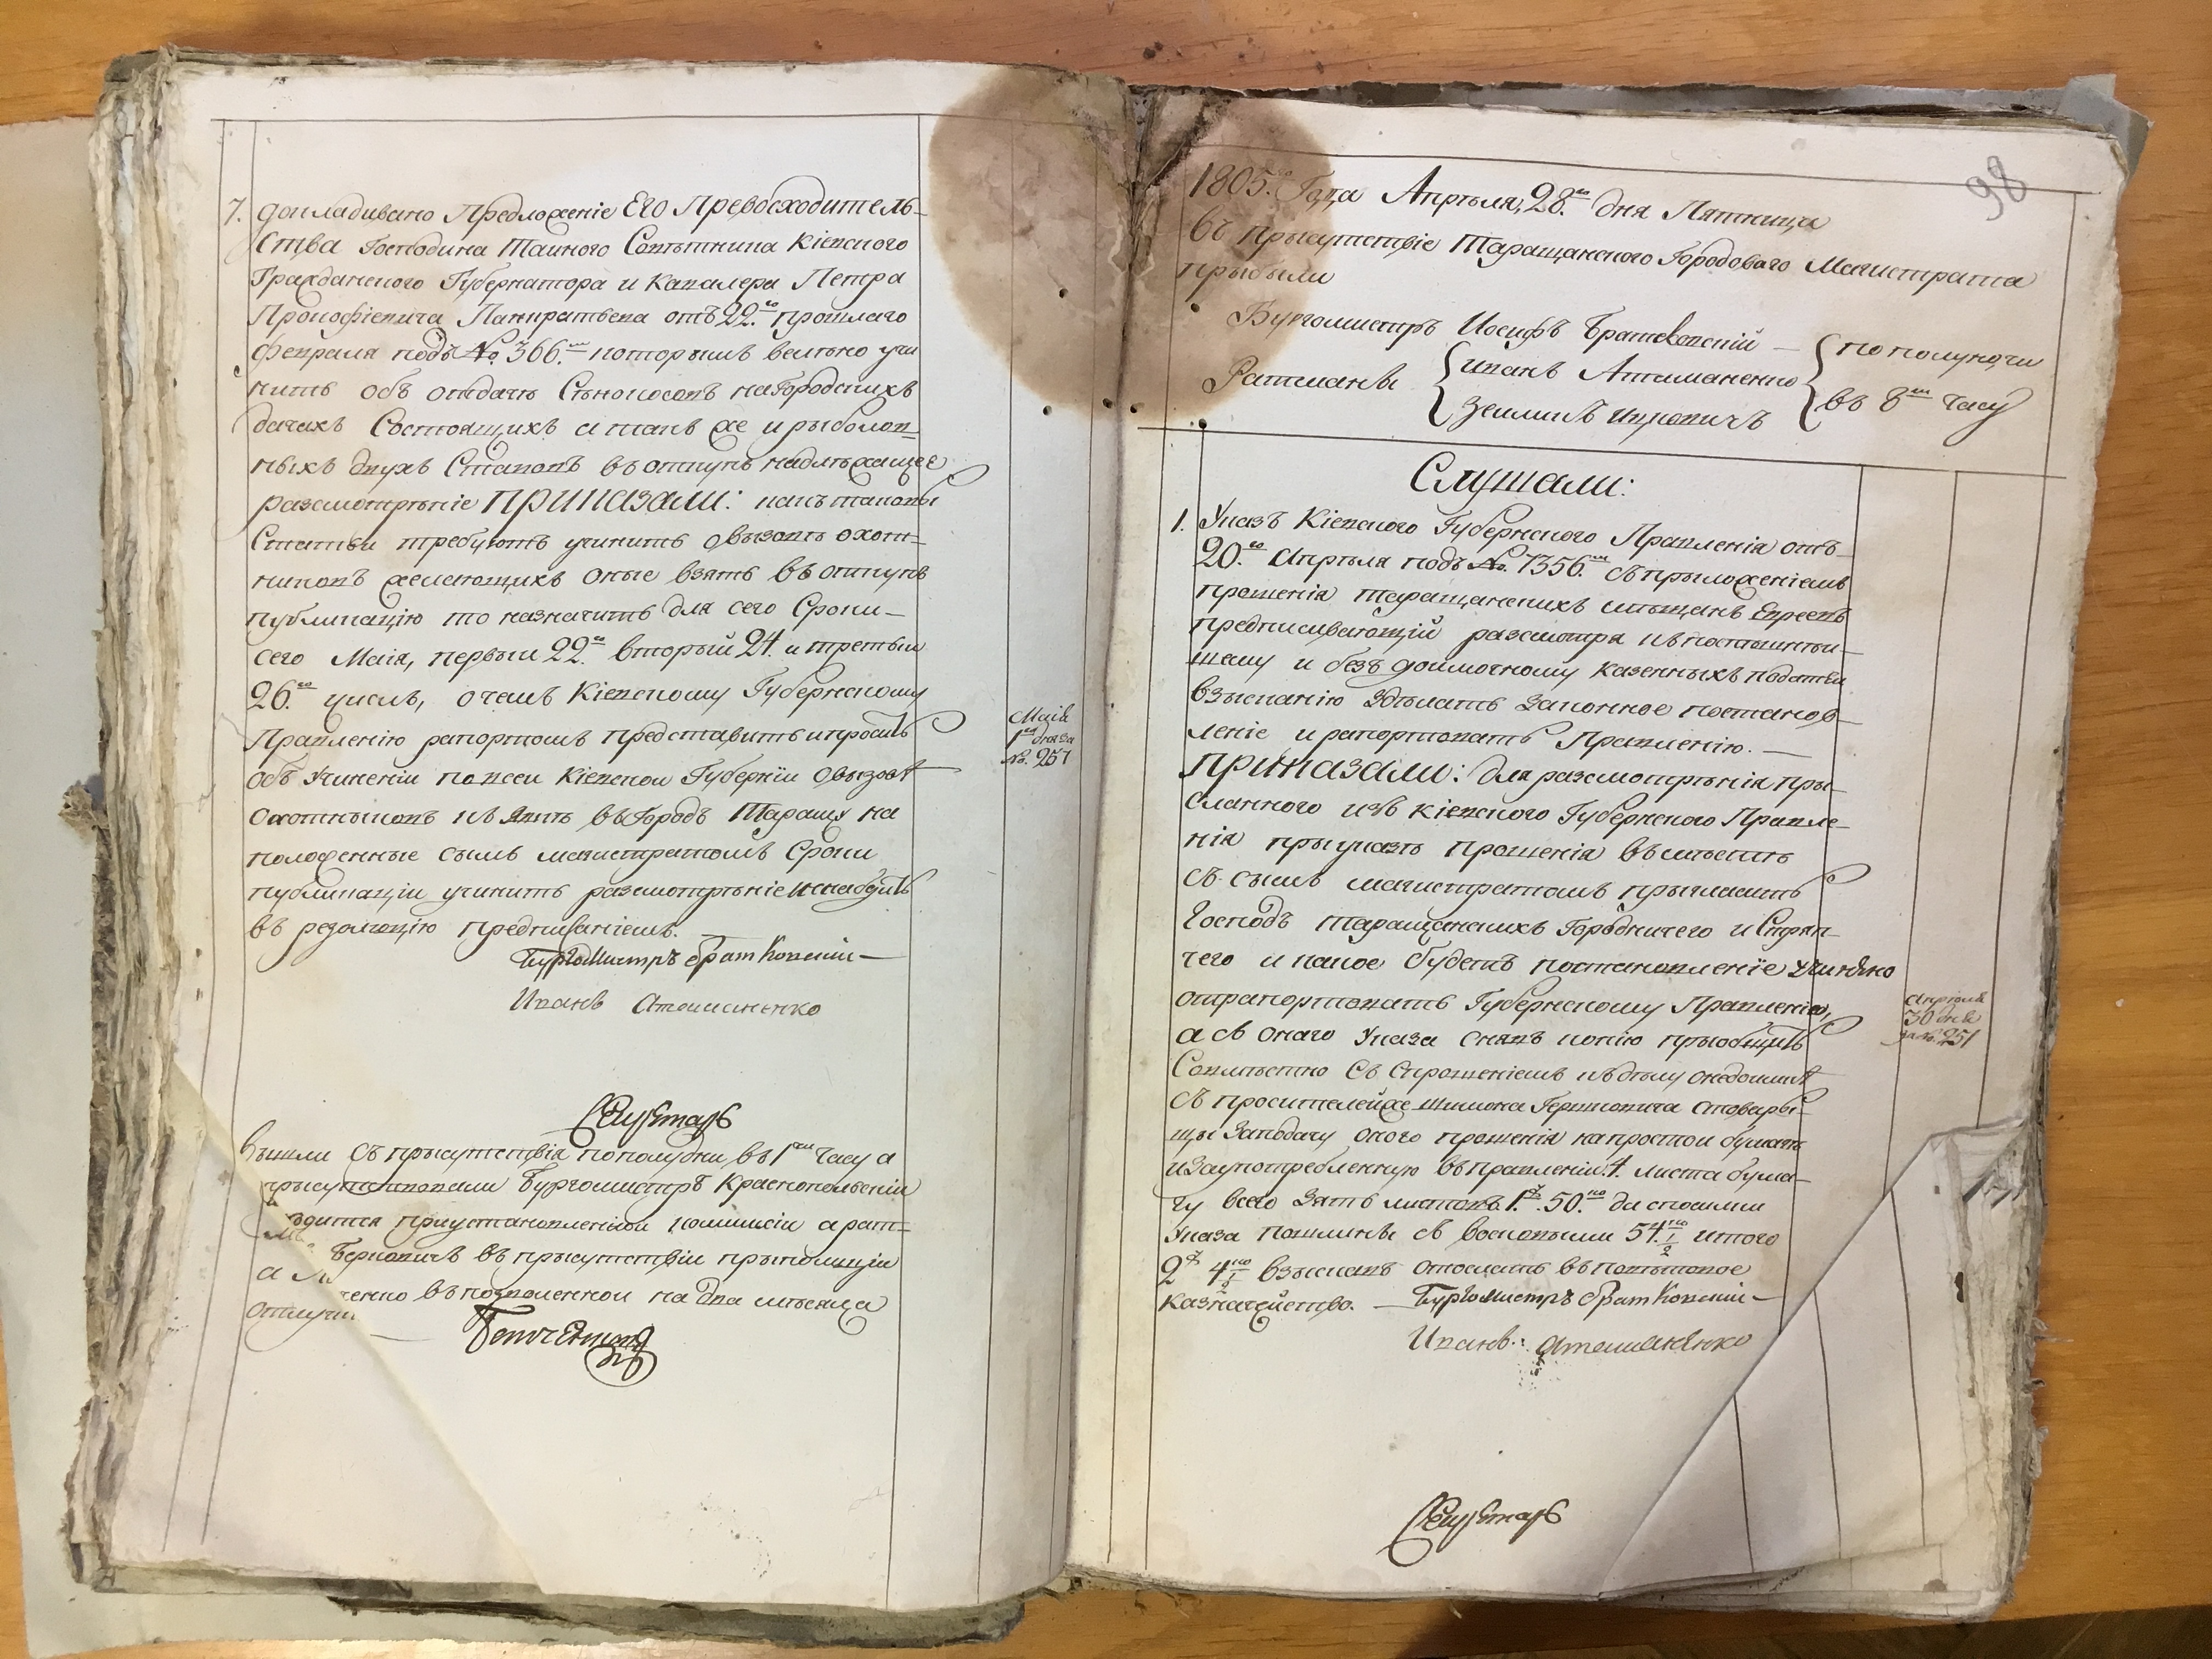 7. докладывано Предложеніе Его Превосходитель-
ства Господина Тайного Советника Кіевского
Гражданского Губернатора и Кавалера Петра
Прокофіевича Панкратьева отъ 22го прошлаго
февраля подъ № 366.мъ которымъ велѣно учи
нить объ отдачѣ Сѣнокосовъ на Городскихъ
дачахъ Состоящихъ а такъ же и рыболов-
ныхъ двухъ Ставовъ въ откупъ надлѣжащее
разсмотрѣніе ПРИКАЗАЛИ: какъ таковы
Статьи требуютъ учинить овызовѣ охот-
никовъ желающихъ оные взять въ откупъ
публикацію то назначить для сего Сроки-
сего Маія, первый 22е второй 24. и третьи
26го числъ, о чемъ Кіевскому Губернскому
Правленію рапортомъ представить и просить
объ учиненіи по всеи Кіевскои Губерніи овызовѣ
охотныковъ къ въ Городъ Таращу на
положенные симъ магистратомъ Сроки
публикаціи учинить разсмотрѣніе и снабдить
въ резолюцію предписаніемъ.
Бургомистръ Братковскій
Иванъ Атаманенко
Маія
1го дня за
№. 257
Секретарь
Вышли съ прысутствія пополудни въ 1мъ часу а
прысутствовали Бургомистръ Краснопольскій
одится приустановленіои комиссіи а рат-
Берковичъ въ прысутствіи прыполиціи
а
ченно въ позволенной на два мѣсяца
отлучки
98
1805го Года Апрѣля, 28го дня Пятница
въ прысутствіе Таращанского Городоваго Магистрата
прыбыли
Бургомистръ Іосифъ Братковскій — пополуночи
Ратманы Иванъ Атаманенко въ 8мъ часу
Зельманъ Ицковичъ
Слушали:
1. Указъ Кіевского Губернского Правленія отъ
20го Апрѣля подъ № 7356.мъ съ прыложеніемъ
прошенія таращанскихъ мѣщанъ Евреевъ
предписывающій разсмотря къ поспѣшнѣй-
шему и безъ доимочному казенныхъ податеи
взысканію здѣлать законное постанов-
леніе и рапортовать Правленію. —
ПРИКАЗАЛИ: для разсмотрѣнія пры-
сланного изъ Кіевского Губернского Правле-
нія прыуказѣ прошенія въмѣстѣ
съ симъ магистратомъ прыгласить
Господъ таращанскихъ Городничего и Стряп-
чего и какое будетъ постановленіе учинено
отрапортовать Губернскому Правленію,
а съ онаго Указа снявъ копію прыобщить
Совмѣстно съ прошеніемъ къ дѣлу онедоимкѣ
съ просителейже Шимона Гершковича стовары-
щы заподачу оного прошенія на простои бумагѣ
изаупотребленную въ правленіи 4 листа бума-
гу всего за пять листовъ 1р. 50.ко да споимки
Указа пошлинъ съ восковыми 54ко 1/2 итого
2р 4ко 1/2 взыскавъ отослать въ повѣтовое
казначейство. — Бургомистръ Братковскій
Иванъ: Атаманенко
Апрѣля
30 дня
за №. 251
Секретарь